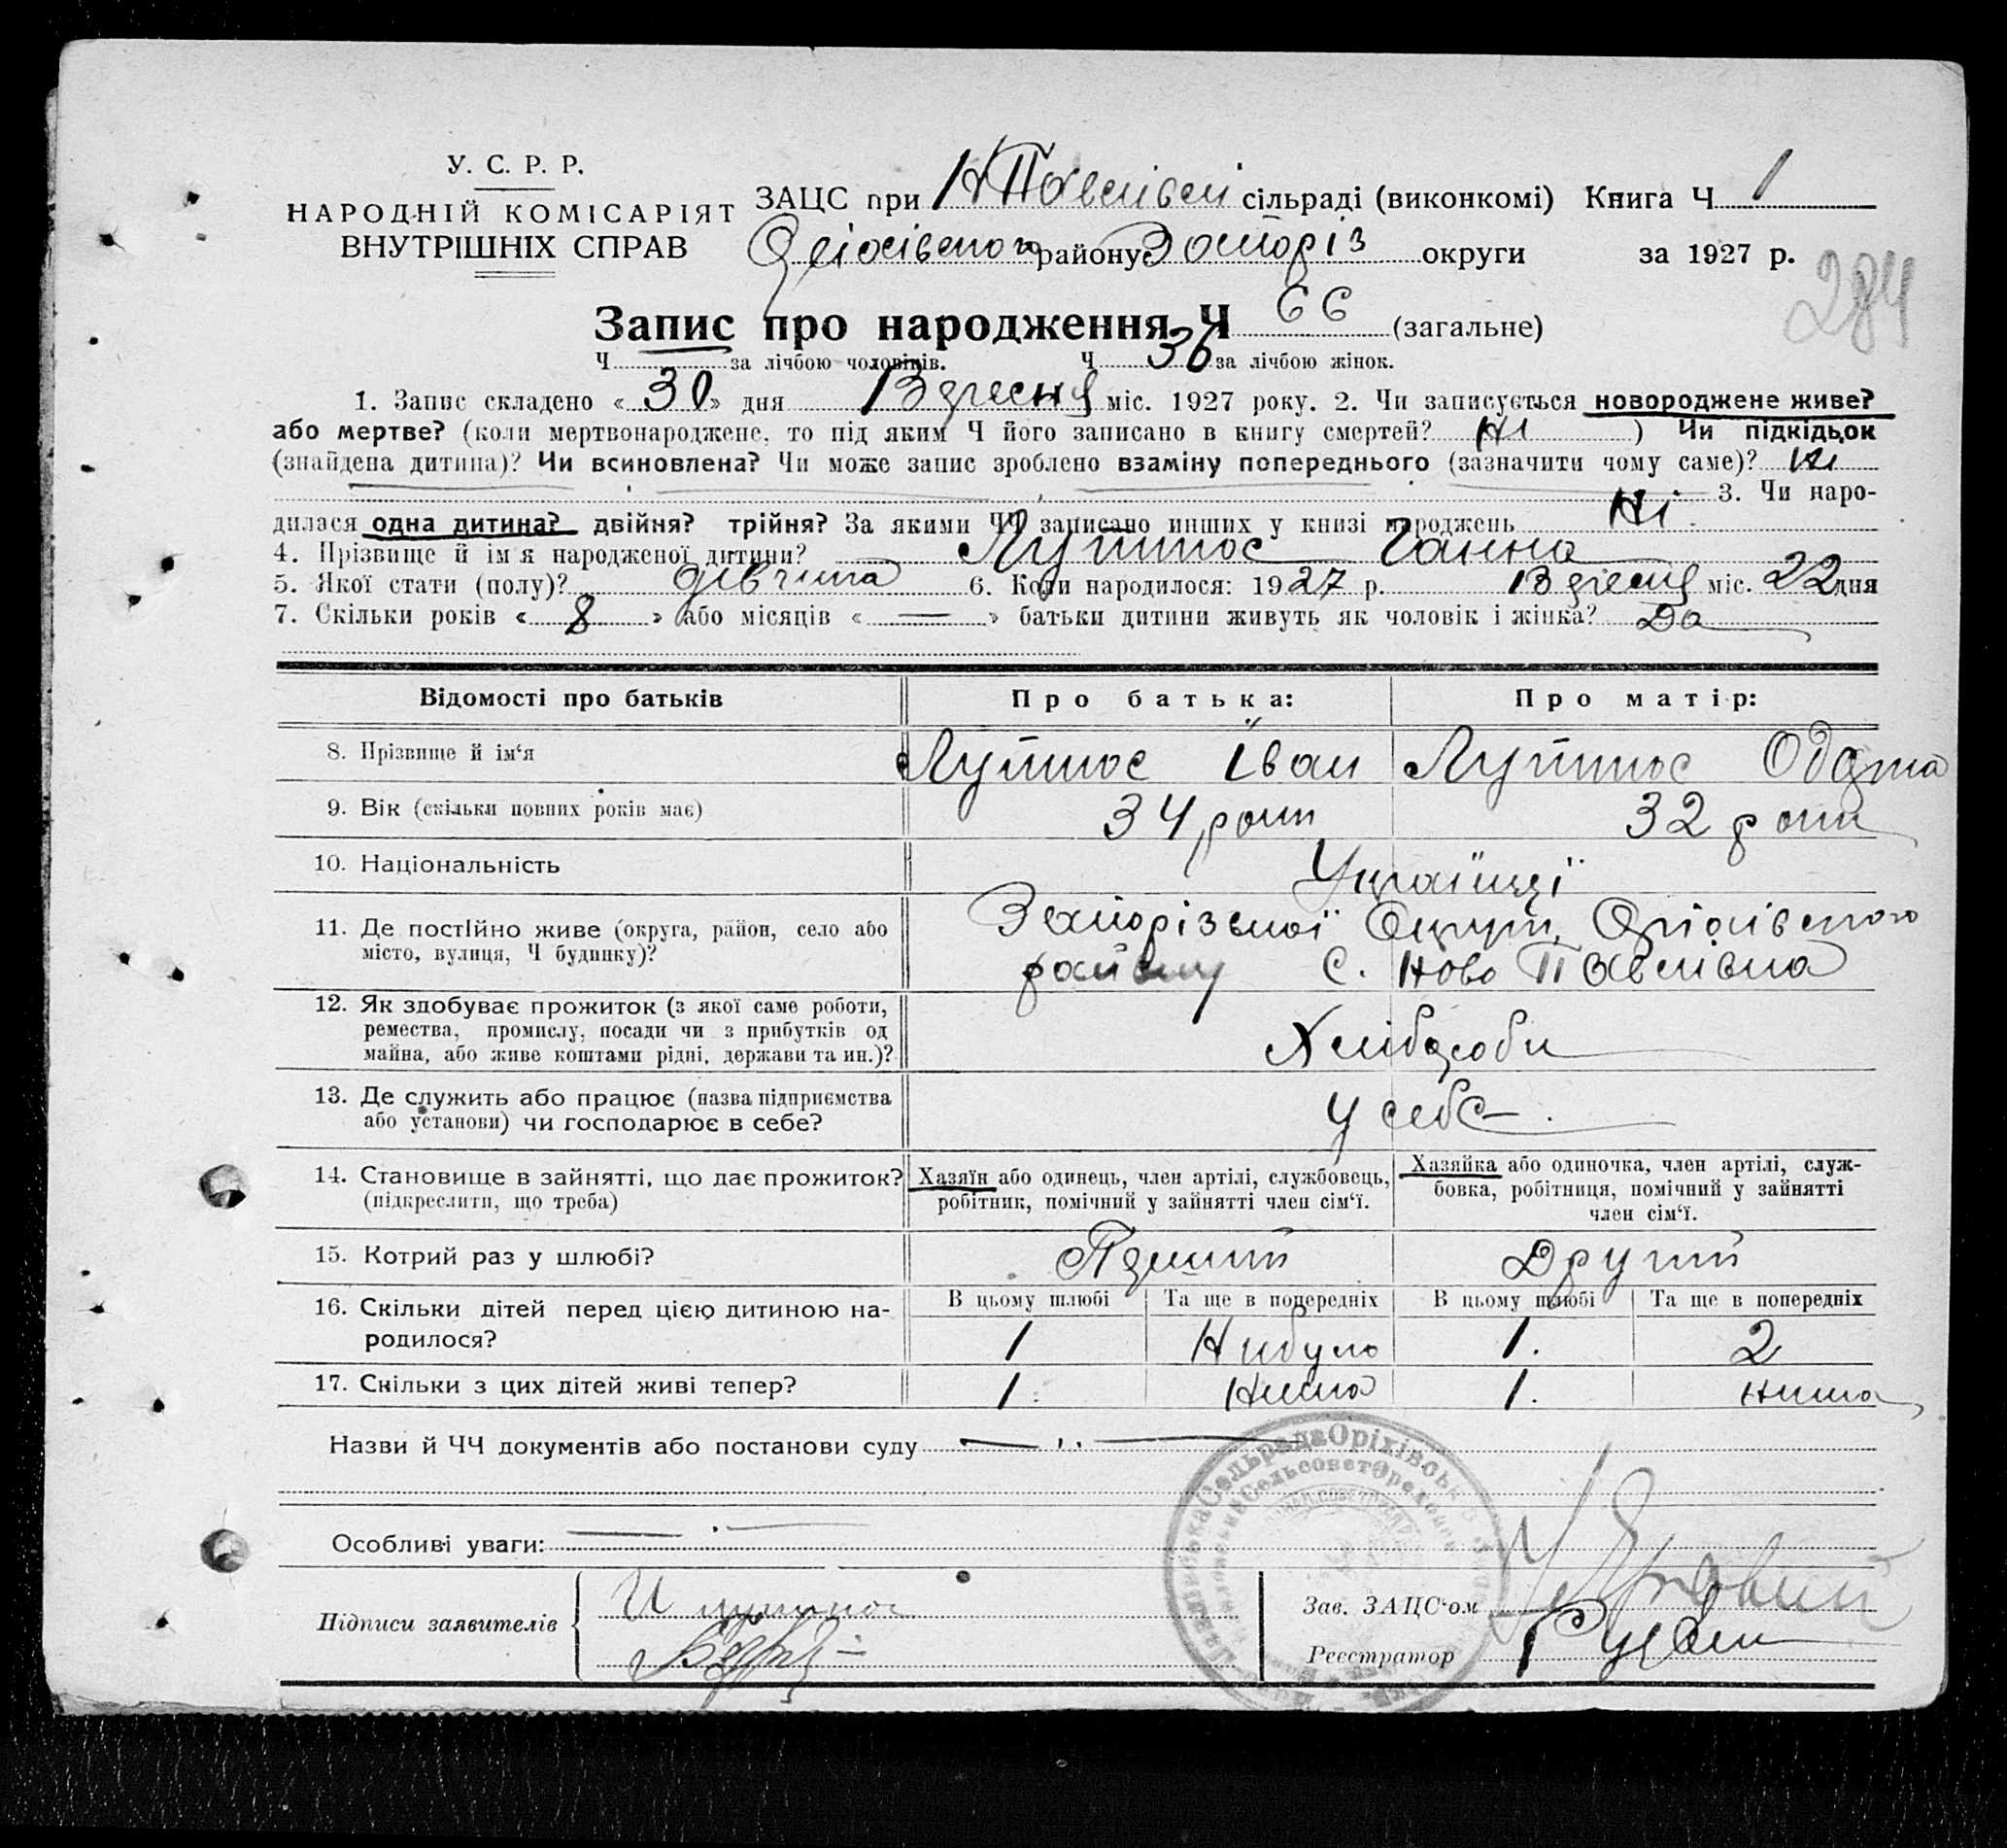 У. С. Р. Р.
НАРОДНІЙ КОМІСАРІЯТ
ВНУТРІШНІХ СПРАВ
ЗАЦС при НПавлівкі сільраді (виконкомі) Книга Ч 1
Оріхівского району Запоріз округи за 1927 р.
284
Запис про народження Ч 66 (загальне)
Ч за лічбою чоловіків. Ч 36 за лічбою жінок.
1. Запис складено « 30 » дня Вдресня міс. 1927 року. 2. Чи записується новороджене живе?
або мертве? (коли мертвонароджене, то під яким Ч його записано в книгу смертей? Ні ) Чи підкідьок
(знайдена дитина)? Чи всиновлена? Чи може запис зроблено взаміну попереднього (зазначити чому саме)? Ні
3. Чи наро-
дилася одна дитина? двійня? трійня? За якими ЧЧ записано инших у книзі народжень Ні
4. Прізвище й ім'я народженої дитини? Ганна
5. Якої стати (полу)? дівчина 6. Коли народилося: 1927 р. міс. 22 дня
7. Скільки років « 8 » або місяців « — » батьки дитини живуть як чоловік і жінка? Да
Відомості про батьків Про батька: Про матір:
8. Прізвище й ім'я Іван
9. Вік (скільки повних років має) 34 роки 32 роки
10. Національність Українці
11. Де постійно живе (округа, район, село або Запорізької Округи, Оріхівского
місто, вулиця, Ч будинку)? району С. Ново Павлівка
12. Як здобуває прожиток (з якої саме роботи,
ремества, промислу, посади чи з прибутків од Хліборобы
майна, або живе коштами рідні, держави та ин.)?
13. Де служить або працює (назва підприємства у себе
або установи) чи господарює в себе?
14. Становище в зайнятті, що дає прожиток? Хазяїн або одинець, член артілі, службовець, Хазяйка або одиночка, член артілі, служ-
(підкреслити, що треба) робітник, помічний у зайнятті член сім'ї. бовка, робітниця, помічний у зайнятті
член сім'ї.
15. Котрий раз у шлюбі? Другий
16. Скільки дітей перед цією дитиною на- В цьому шлюбі Та ще в попередніх В цьому шлюбі Та ще в попередніх
родилося? 1 Нибуло 1. 2
17. Скільки з цих дітей живі тепер? 1. Нима 1. нима
Назви й ЧЧ документів або постанови суду
Особливі уваги:
Підписи заявителів
Зав. ЗАЦС'ом
Реєстратор